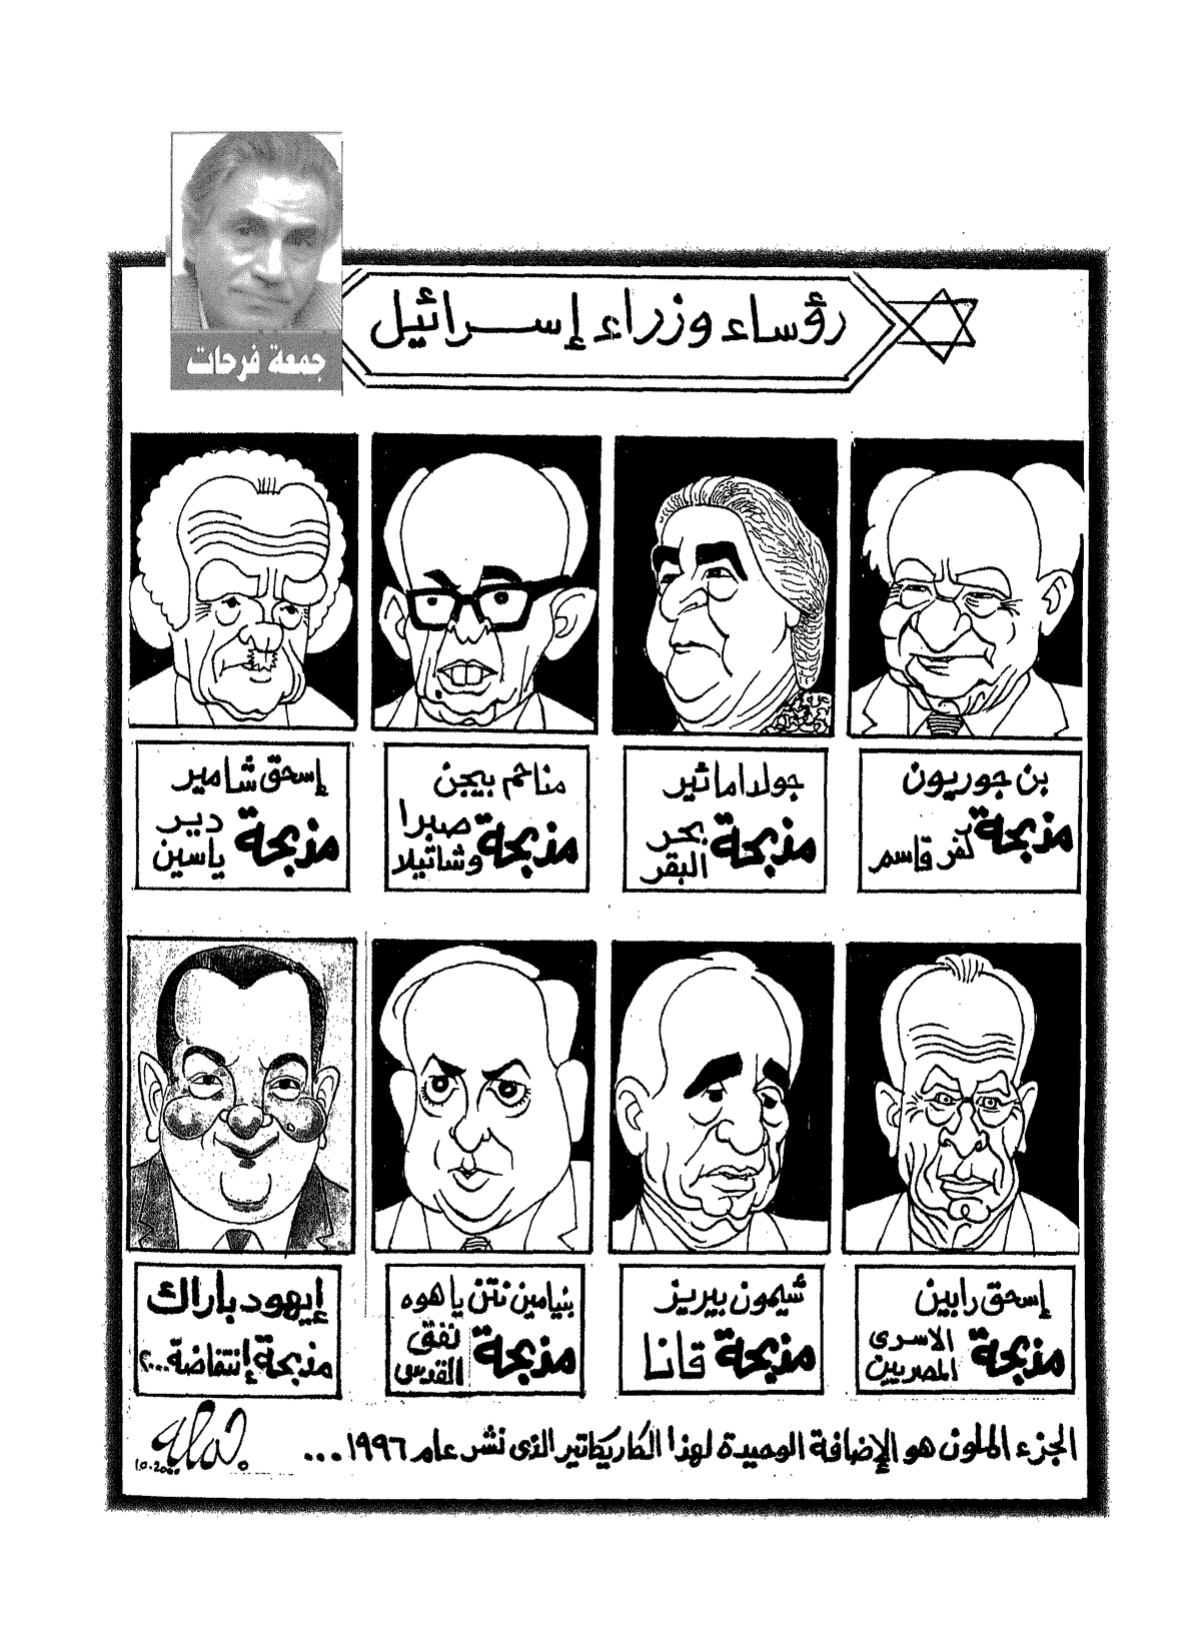 جمعة فرحات
رؤساء وزراء إسرائيل
بن جوريون
مذبحة كفر قاسم
جولدا مائير
مذبحة بحر
البقر
مناحم بيجن
مذبحة صبرا
وشاتيلا
إسحق شامير
مذبحة دير
ياسين
إسحق رابين
مذبحة الاسرى
المصريين
شيمون بيريز
مذبحة قانا
بنيامين نتن ياهوه
مذبحة نفق
القدس
إيهود باراك
مذبحة إنتفاضة...؟
الجزء الملون هو الإضافة الوحيدة لهذا الكاريكاتير الذى نشر عام ١٩٩٦...
جمعة